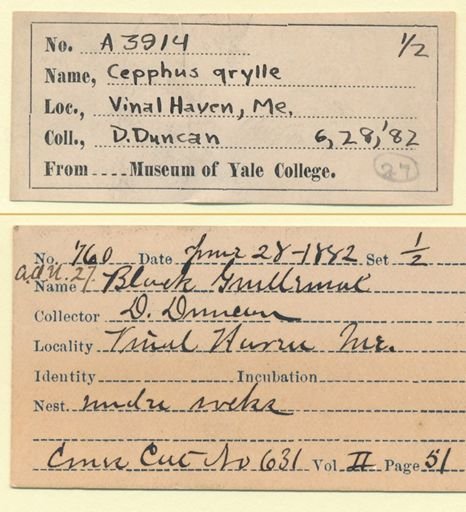 No. A 3914 1/2
Name, Cepphus grylle
Loc., Vinal Haven, Me.
Coll., D. Duncan 6,28,'82
From .... Museum of Yale College.
27
No. 760 Date June 28-1882 Set 1/2
a.o.u. 27. Name Black Guillemot
Collector D. Duncan
Locality Vinal Haven Me.
Identity Incubation
Nest. under rocks
Cat No 631 Vol II Page 51